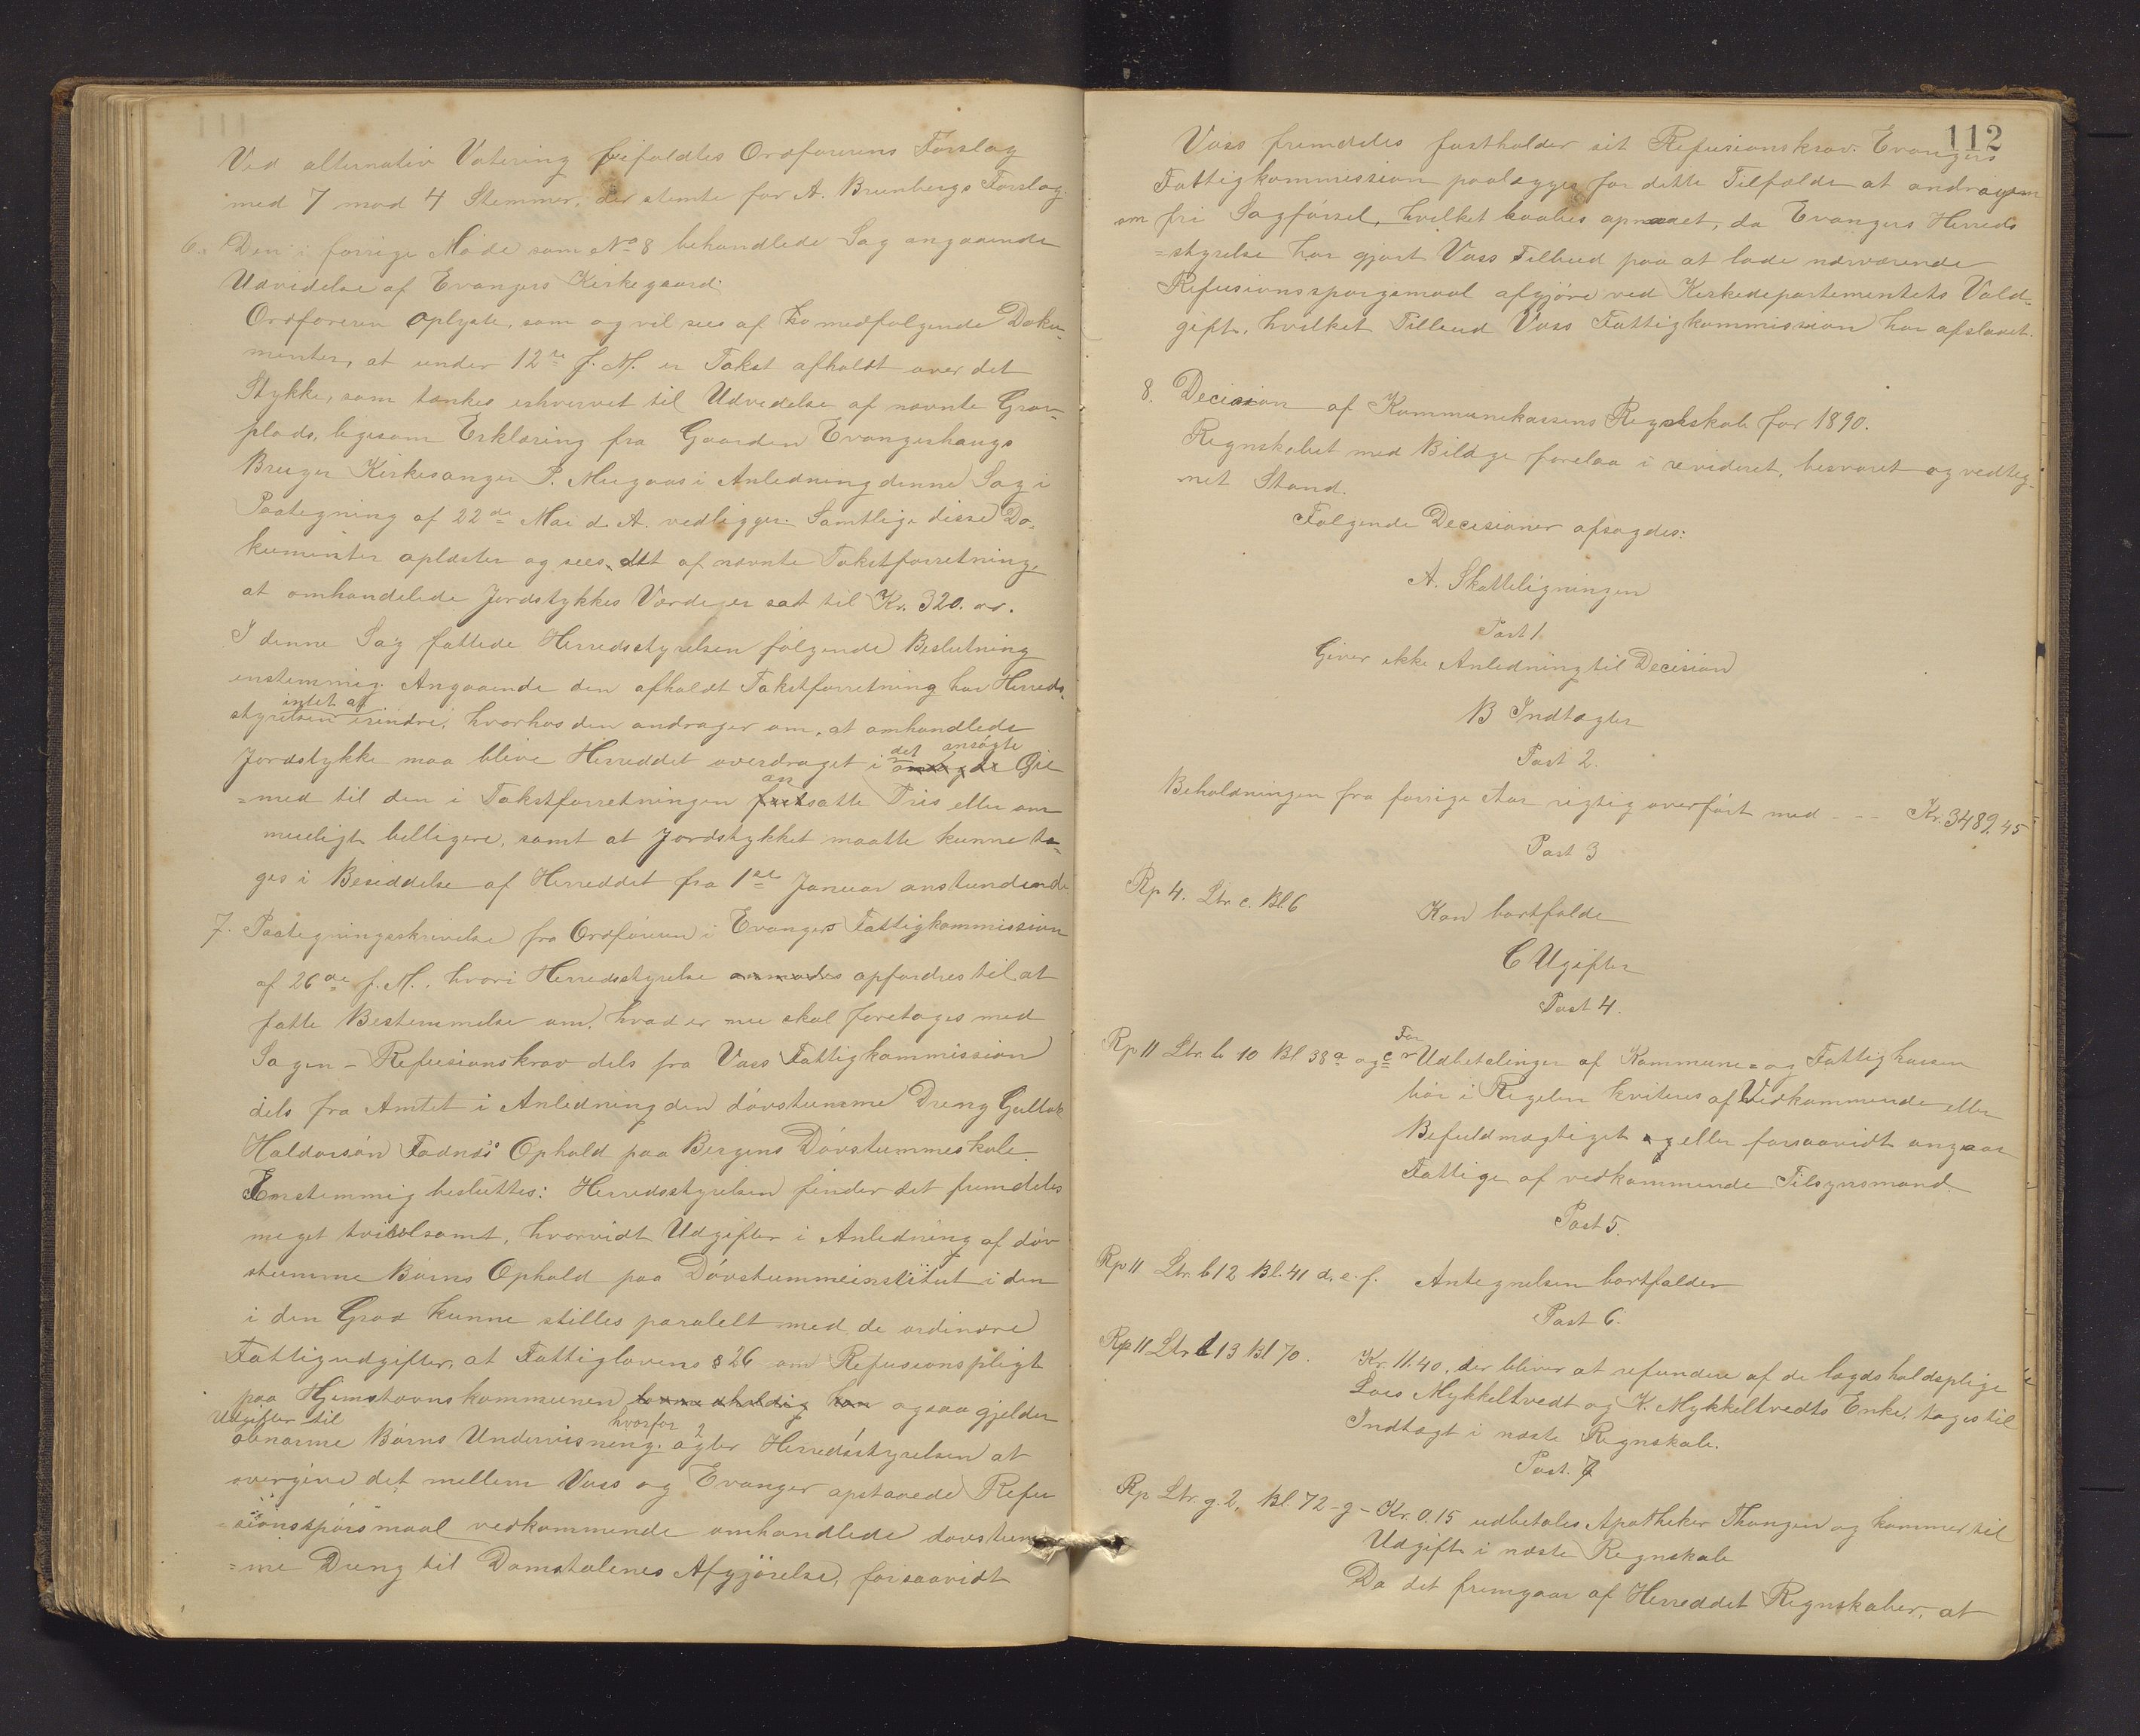 Ved alternativ Votering bifaldtes Ordførerens Forslag
med 7 mod 4 Stemmer, der stemte for A. Brunbergs Forslag.
6. Den i forrige Møde som No 8 behandlede Sag angaaende
Udvidelse af Evangers Kirkegaard.
Ordføreren oplyste, som og vil sees af medfølgende Doku-
menter, at under 12te f. M. er Takst afholdt over det
Stykke, som tænkes erhvervet til Udvidelse af nævnte Grav-
plads, ligesom Erklæring fra Gaarden Evangerhaugs
Bruger Kirkesanger P. Mugaas i Anledning denne Sag i
Paategning af 22de Mai d. A. vedligger. Samtlige disse Do-
kumenter oplæstes og sees det af nævnte Takstforretning
at omhandelede Jordstykkes Værdi er sat til Kr. 320. or.
I denne Sag fattede Herredsstyrelsen følgende Beslutning
enstemmig. Angaaende den afholdt Takstforretning har Herreds-
styrelsen intet at erindre, hvorhos den andrager om, at omhandlede
Jordstykke maa blive Herreddet overdraget i det ansøgte Øie
=med til den i Takstforretningen ansatte Pris eller om
mueligt billigere, samt at Jordstykket maatte kunne ta-
ges i Besiddelse af Herreddet fra 1ste Januar anstundende.
7. Paategningsskrivelse fra Ordføreren i Evangers Fattigkommission
af 26de f. M., hvori Herredsstyrelse anmodes opfordres til at
fatte Bestemmelse om, hvad er nu skal foretages med
Sagen - Refusionskrav dels fra Voss Fattigkommission
dels fra Amtet i Anledning den døvstumme Dreng Gullak
Haldorsøn Fadnæs Ophold paa Bergens Døvstummeskole.
Enstemmig besluttes: Herredsstyrelsen finder det fremdeles
meget tvivlsomt, hvorvidt Udgifter i Anledning af døv
stumme Børns Ophold paa Døvstummeinstitut i den
i den Grad kunne stilles paralelt med de ordinære
Fattigudgifter, at Fattiglovens § 26 om Refusionspligt
paa Hjemstavnskommunen ogsaa gjelder
Udgifter til
abnorme Børns Undervisning. hvorfor agter Herredsstyrelsen at
overgive det mellem Voss og Evanger opstaaede Refu
=sionsspørsmaal vedkommende omhandlede døvstum
=me Dreng til Domstolenes Afgjørelse, forsaavidt
112
Voss fremdeles fastholder sit Refusionskrav. Evangers
Fattigkommission paalægges for dette Tilfælde at andragem
om fri Sagførsel, hvilket haabes opnaaet, da Evangers Herreds
=styrelse har gjort Voss Tilbud paa at lade nærværende
Refusionsspørgsmaal afgjøre ved Kirkedepartementets Vold-
gift, hvilket Tilbud Voss Fattigkommission har afslaaet.
8. Decision af Kommunekassens Regnskab for 1890.
Regnskabet med Bilage forelaa i revideret, besvaret og vedteg-
net Stand.
Følgende Decisioner afsagdes:
A. Skatteligningen
Post 1.
Giver ikke Anledning til Decision
B Indtægter
Post 2.
Beholdningen fra forrige Aar rigtig overført med - - - Kr. 3489.45
Post 3
Rp 4. Ltr. c. Bl. 6 Kan bortfalde
C Ugifter
Post 4.
Rp 11 Ltr. b 10 Bl 38 a og c For Udbetalinger af Kommune= og Fattigkassen
bør i Regelen kviteres af Vedkommende eller
Befuldmægtiget eller forsaavidt angaar
Fattige af vedkommende Tilsynsmand.
Post 5.
Rp 11 Ltr. b 12 Bl. 41 d. e. f. Antegnelsen bortfalder
Post 6.
Rp 11 Ltr d 13 Bl 70. Kr. 11.40, der bliver at refundere af de lægdsholdsplige
Lars Mykkeltvedt og K. Mykkeltvedts Enke, tages til
Indtægt i næste Regnskab.
Post. 7
Rp Ltr. g. 2. Bl. 72 - g - Kr. 0.15 udbetales Apotheker Thongen og kommer til
Udgift i næste Regnskab
Da det fremgaar af Herreddet Regnskaber, at